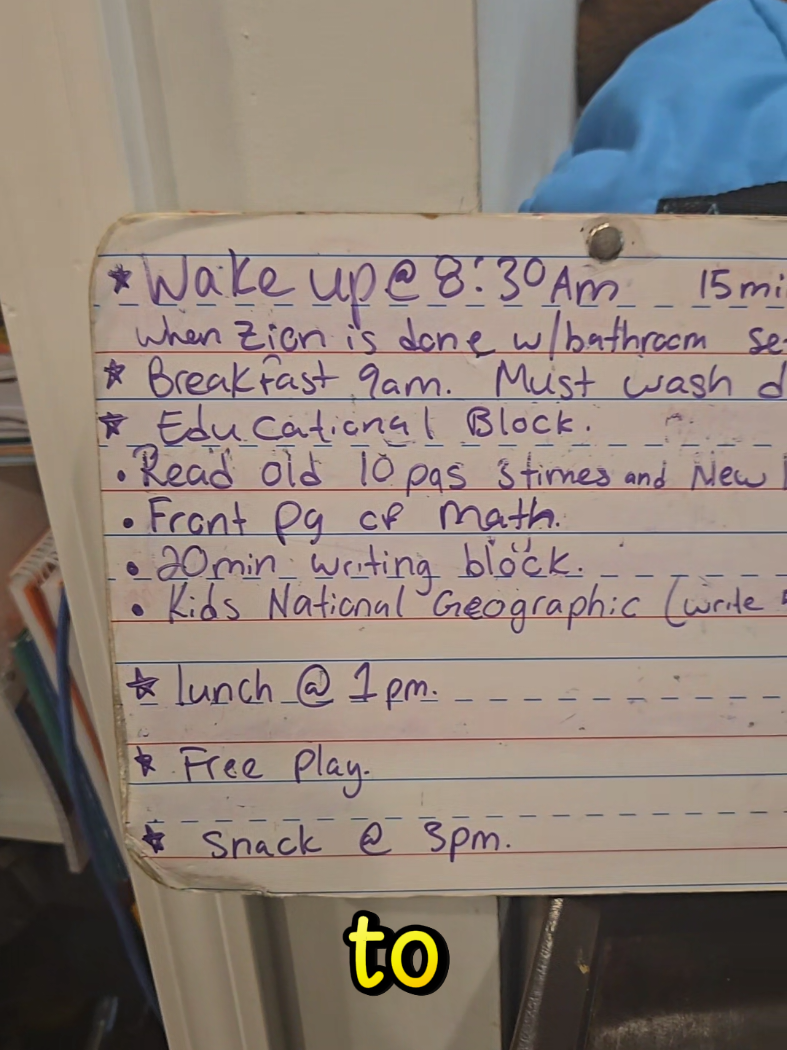 ★ Wake up @ 8:30 Am 15 mi
when Zion is done w/bathroom se
★ Breakfast 9am. Must wash d
★ Educational Block.
• Read old 10 pgs 3 times and New
• Front pg of Math.
• 20min writing block.
• Kids National Geographic (write
★ lunch @ 1pm.
★ Free Play.
★ Snack @ 3pm.
to